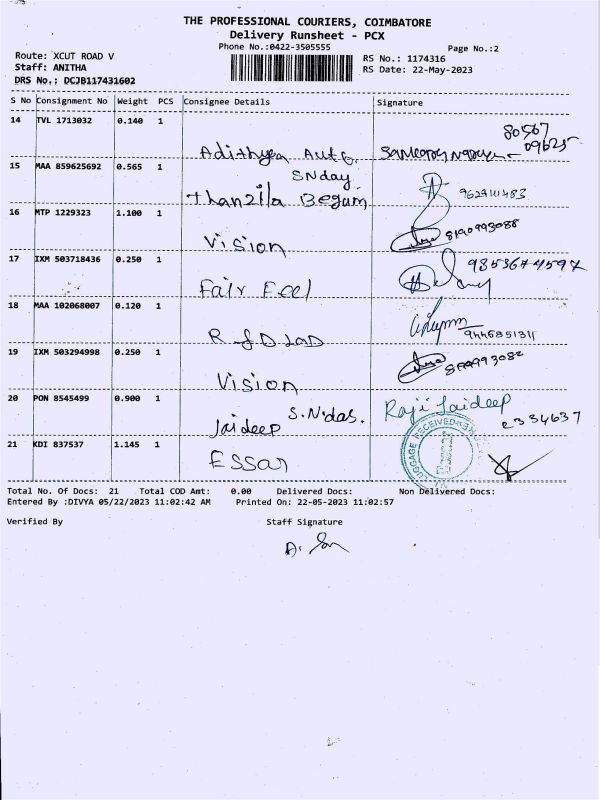 THE PROFESSIONAL COURIERS, COIMBATORE
Delivery Runsheet - PCX
Phone No.:0422-3505555
Page No.:2
Route: XCUT ROAD V
Staff: ANITHA
DRS No.: DCJB117431602
RS No.: 1174316
RS Date: 22-May-2023
S No Consignment No Weight PCS Consignee Details Signature
14 TVL 1713032 0.140 1 Adithyea Auto 80567 09625
15 MAA 859625692 0.565 1 SNday Thanzila Begum
16 MTP 1229323 1.100 1 Vision 8190993088
17 IXM 503718436 0.250 1 Fair Feel
18 MAA 102068007 0.120 1 9446851311
19 IXM 503294998 0.250 1 Vision
20 PON 8545499 0.900 1 Jaideep S.N.das. Raji Jaideep 2334637
21 KDI 837537 1.145 1 Essar RECEIVED LUGGAGE
Total No. Of Docs: 21 Total COD Amt: 0.00 Delivered Docs: Non Delivered Docs:
Entered By :DIVYA 05/22/2023 11:02:42 AM Printed On: 22-05-2023 11:02:57
Verified By Staff Signature